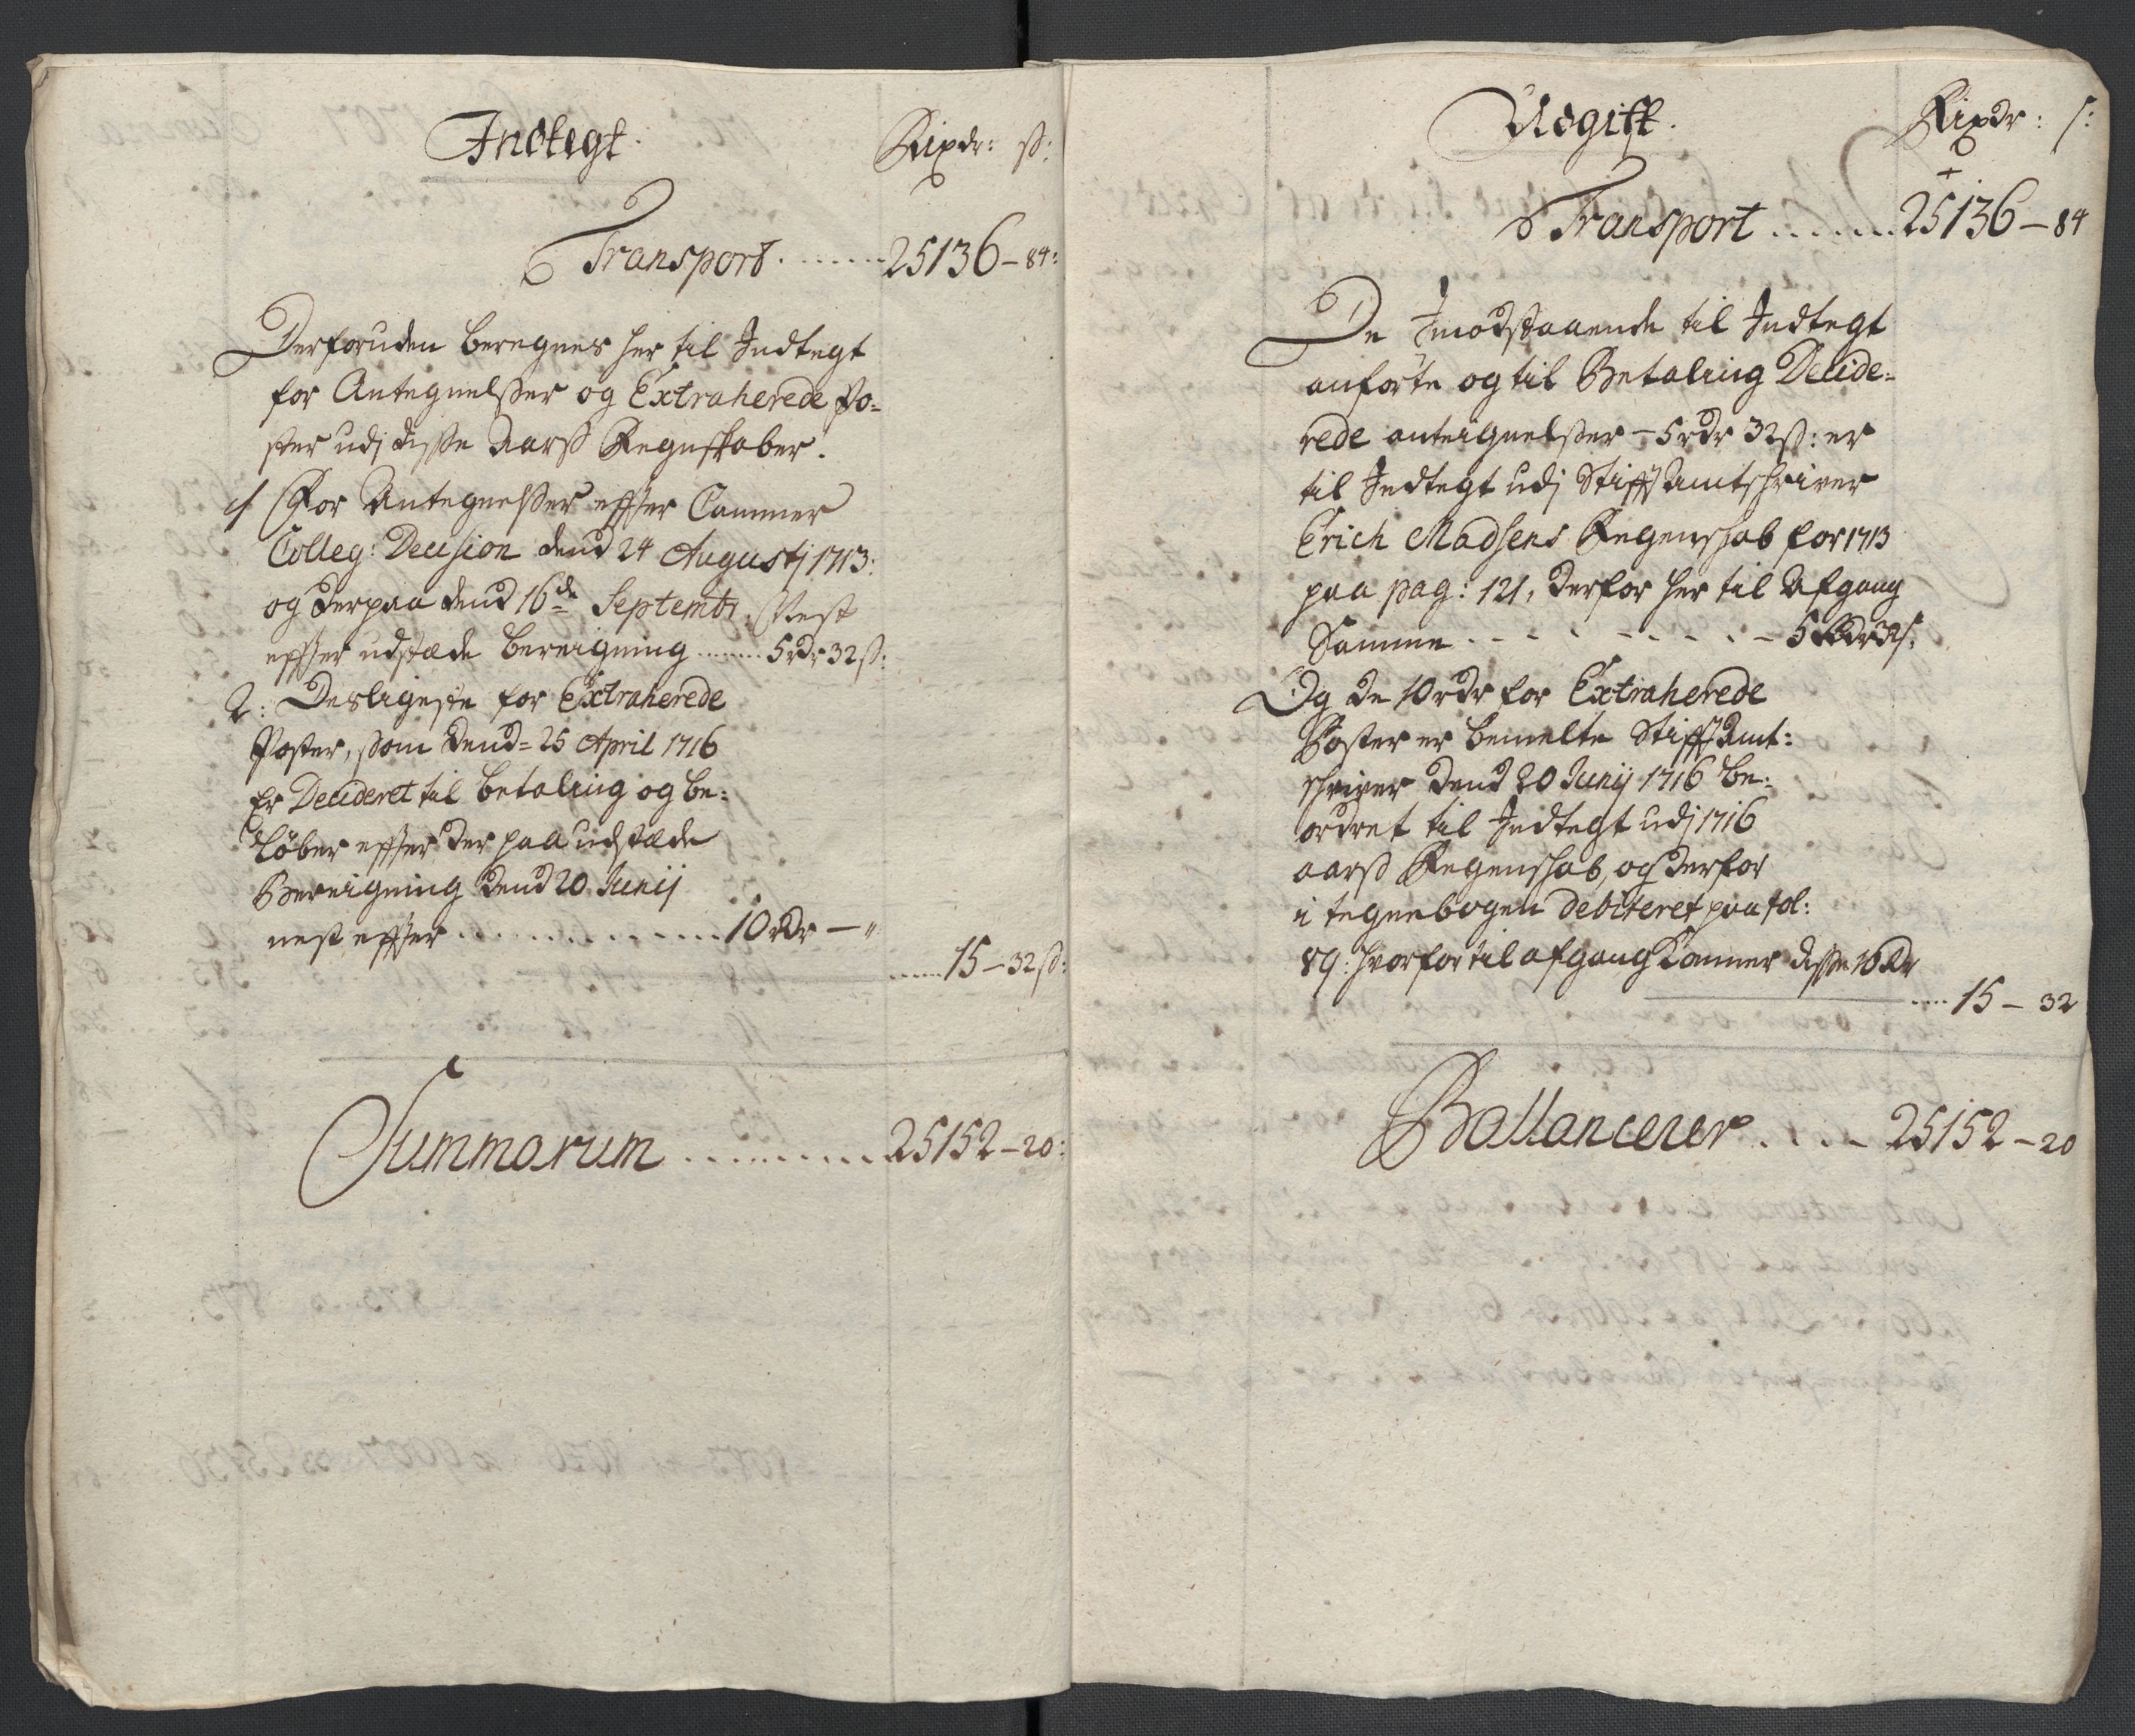 Indtegt. Rixdr: ß:
Transport. ...... 25136 – 84:
Derforuden beregnes her til Indtegt
for Antegnelßer og Extraherede Po=
ster udj disse Aarß Regnskaber.
1 For Antegnelßer effter Cammer
Colleg: Decision dend 24 Augustj 1713:
og derpaa dend 16de Septembr. Nest
effter udstæde bereigning ...... 5 rdr 32 ß:
2: Desligeste for Extraherede
Poster, ßom dend= 25 April 1716
er Decideret til betaling og be=
løber effter der paa udstæde
Bereigning dend 20 Junij
nest effter ............. 10 rdr – "
..... 15 – 32 ß:
Summarum ......... 25152 – 20:
Udgifft. Rixdr: s:
Transport ...... 25136 – 84
De Imodstaaende til Indtegt
anførte og til Betaling Decide=
rede anteignelßer – 5 rdr 32 ß: er
til Indtegt udj Stifftamtschriver
Erich Madsens Regenschab for 1713
paa pag: 121, derfor her til Afgang
Samme . - - - - - - - 5 Rdr 32 s:
Og de 10 rdr for Extraherede
Poster er bemelte Stifft Amt=
schriver dend 20 Junij 1716 be=
ordret til Indtegt udj 1716
aarß Regenschab, og derfor
i tegnebogen debiteret paa fol:
89: hvorfor til afgang kommer disse 10 Rdr
.... 15 – 32
Ballancerer . . . . 25152 – 20